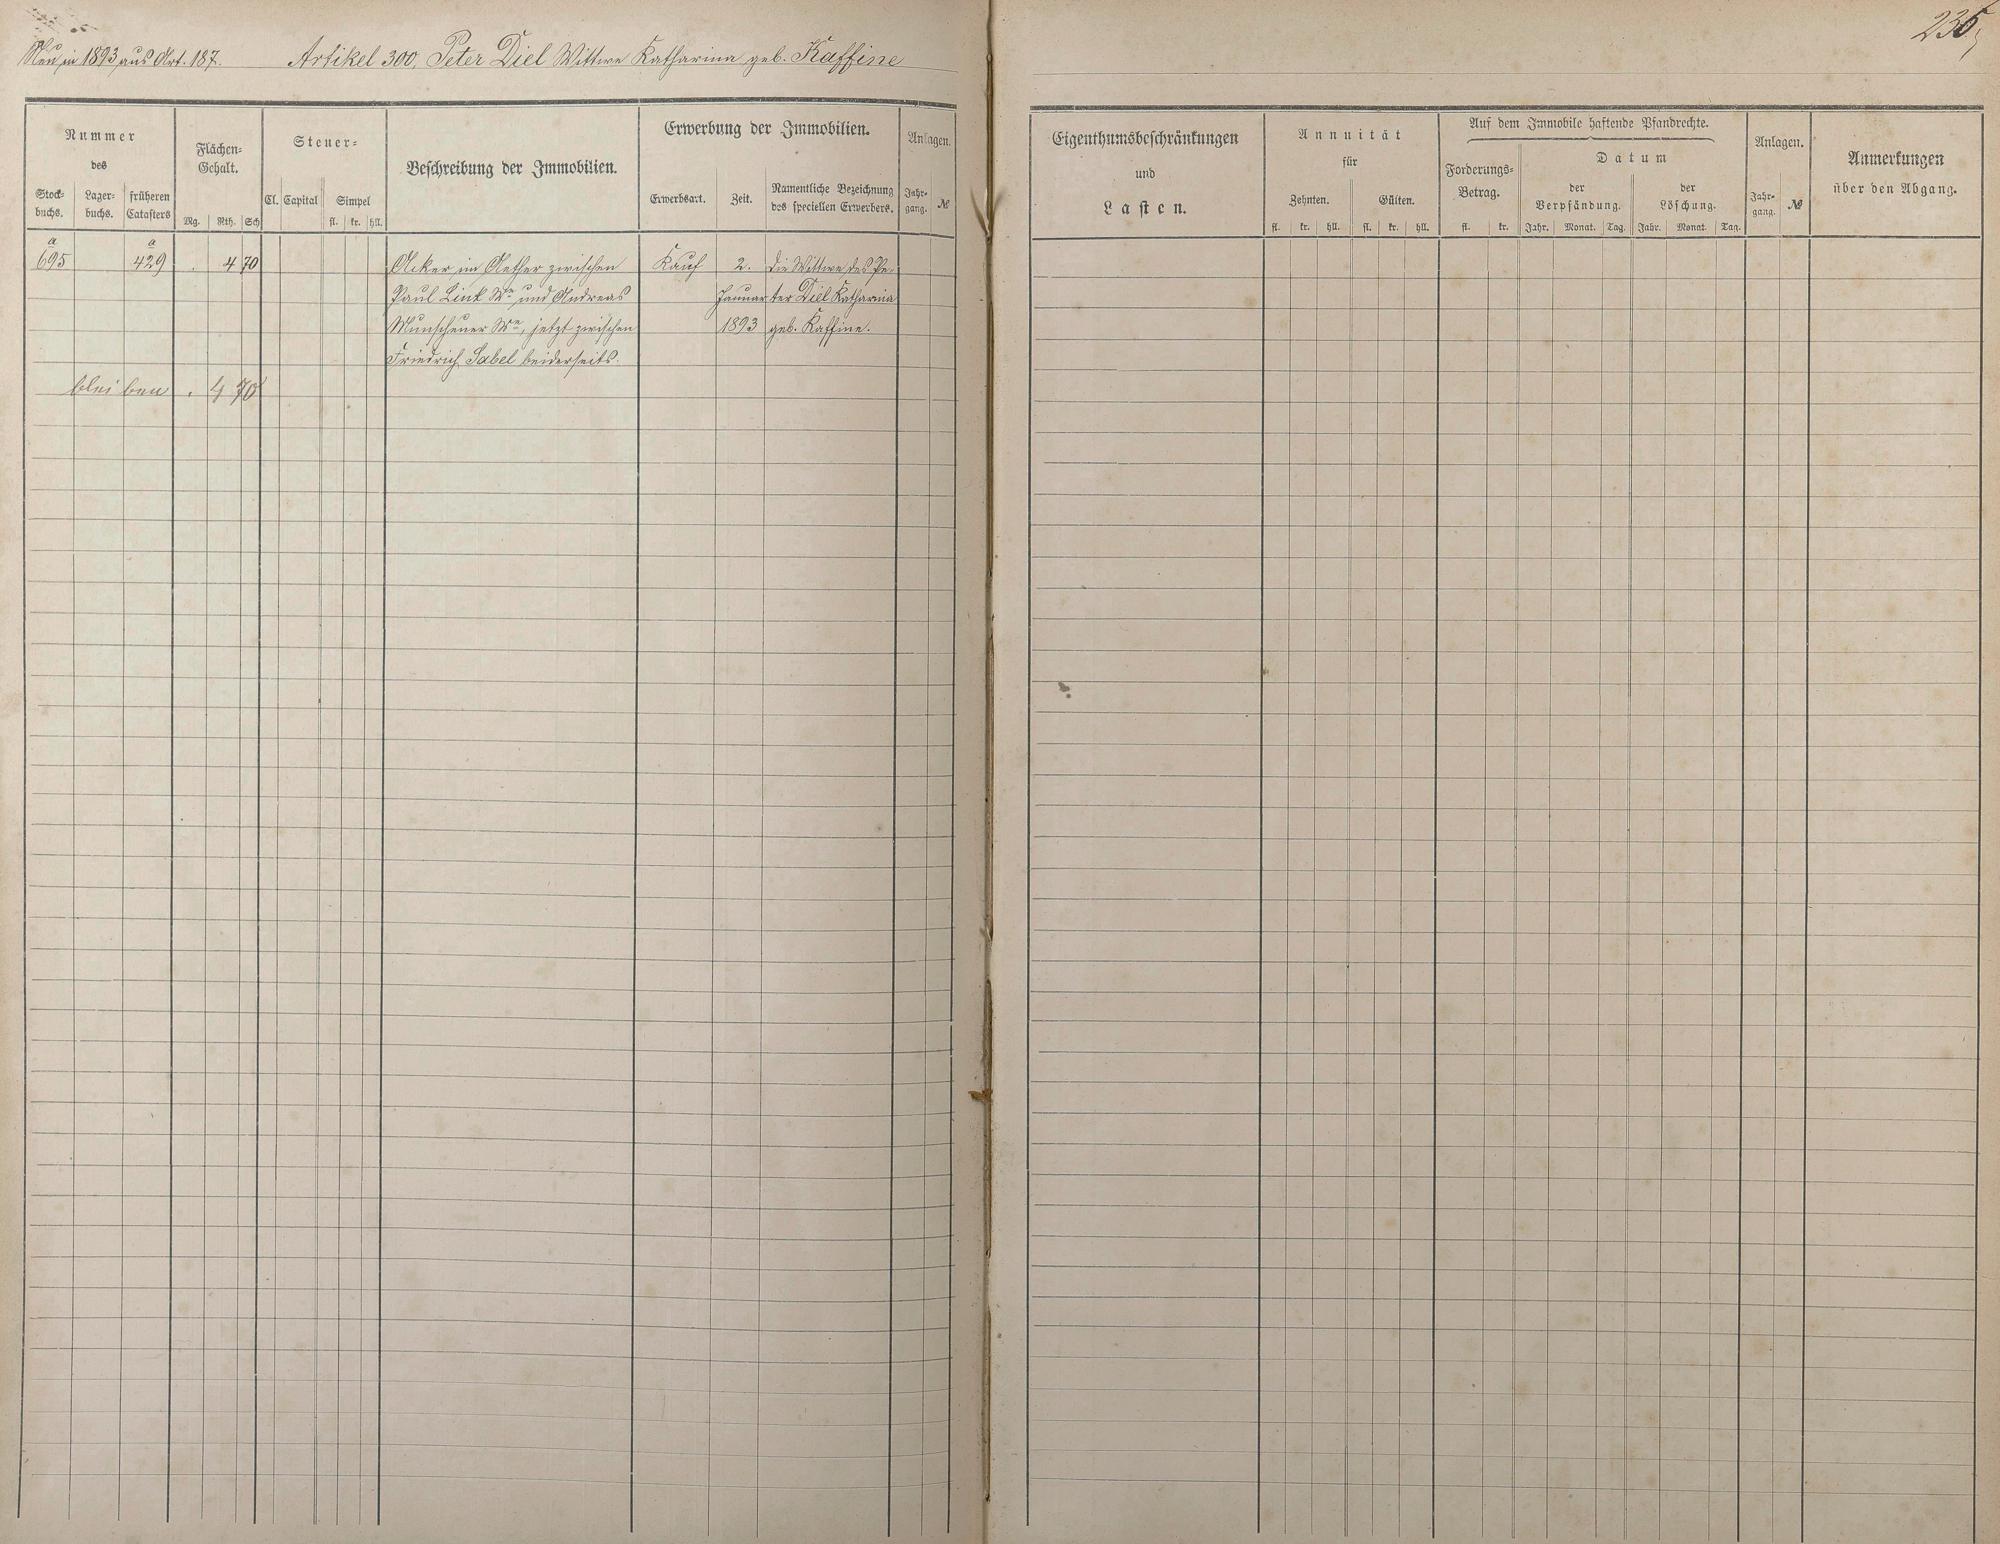 235,
Neu in 1893 aus Art. 187. Artikel 300, Peter Diel Wittwe Katharina geb. Kaffine
Nummer
des
Stock-
buchs.
Lager-
buchs.
früheren
Catasters
Flächen-
Gehalt.
Mg. Rth. Sch
Steuer-
Cl. Capital Simpel
fl. kr. hll.
Beschreibung der Immobilien.
Erwerbung der Immobilien.
Erwerbsart. Zeit.
Namentliche Bezeichnung
des speciellen Erwerbers.
Anlagen.
Jahr-
gang. №
Eigenthumsbeschränkungen
und
Lasten.
Annuität
für
Zehnten. Gülten.
fl. kr. hll. fl. kr. hll.
Auf dem Immobile haftende Pfandrechte.
Forderungs-
Betrag.
fl. kr.
Datum
der
Verpfändung.
Jahr. Monat. Tag.
der
Löschung.
Jahr. Monat. Tag.
Anlagen.
Jahr-
gang. №
Anmerkungen
über den Abgang.
a a
695 429 . 4 70 Acker im Aether zwischen Kauf 2. die Wittwe des Pe-
Paul Link We und Andreas Januar ter Diel Katharina
Munscheuer We, jetzt zwischen 1893 geb. Kaffine.
Friedrich Sabel beiderseits.
bleiben . 4 70